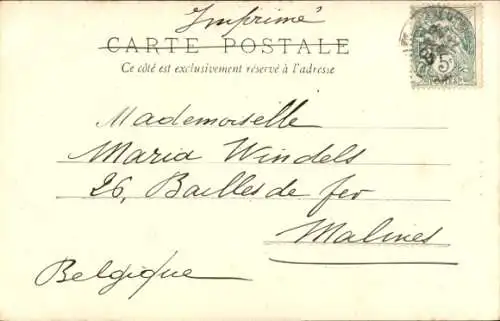 Imprimé
CARTE POSTALE
Ce côté est exclusivement réservé à l'adresse
5
Mademoiselle
Maria Windels
26, Bailles de fer
Malines
Belgique